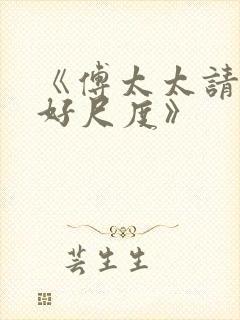 《傅太太請
好尺度》
芸生生